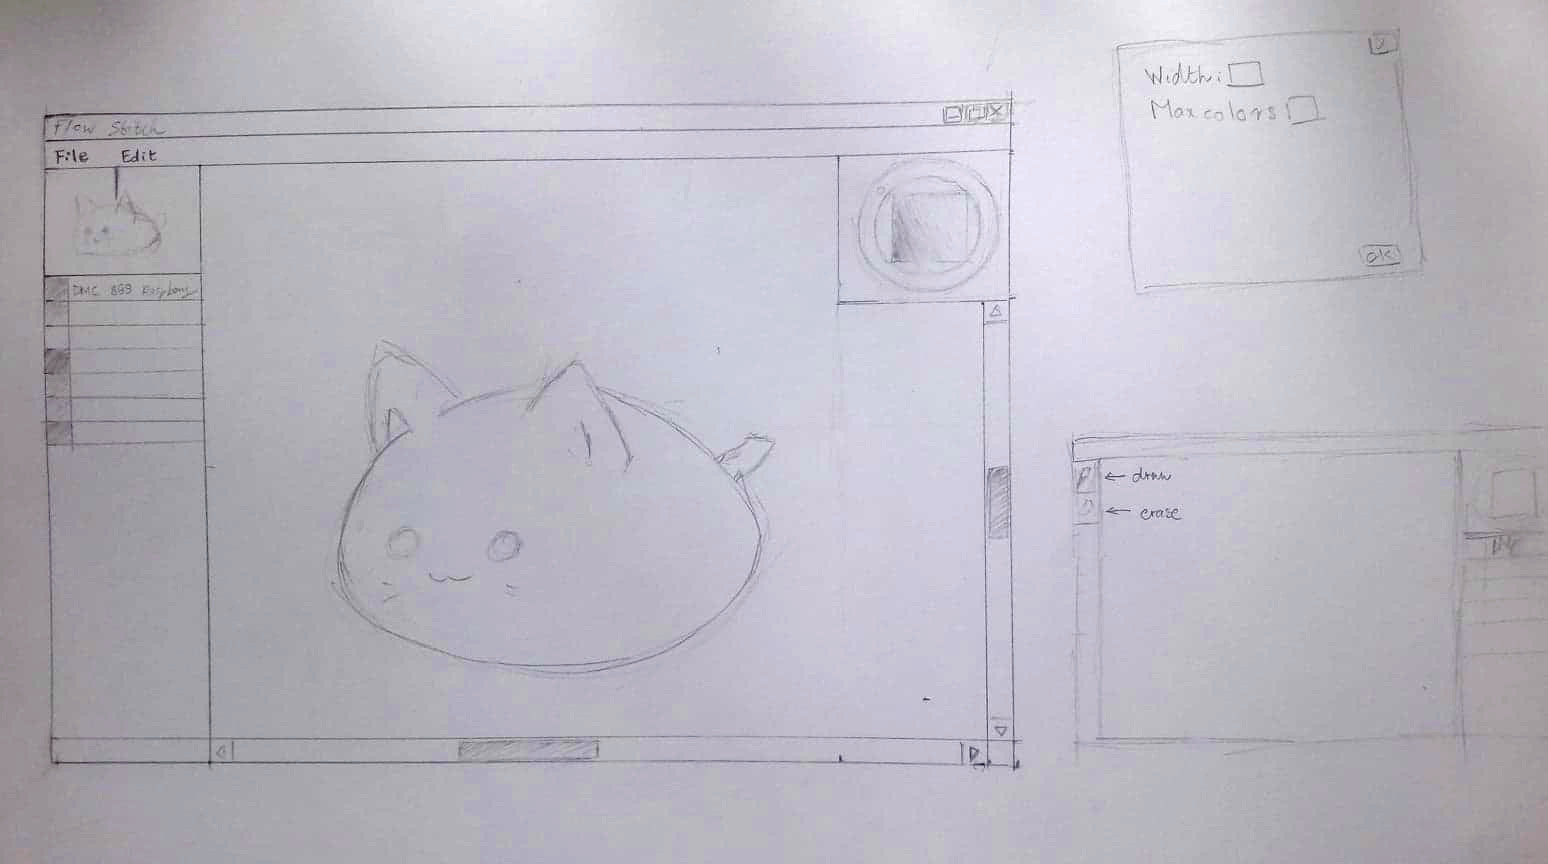 Flow Stitch
File Edit
DMC 899 Raspberry
Width:
Max colors
OK
← draw
← erase
DMC